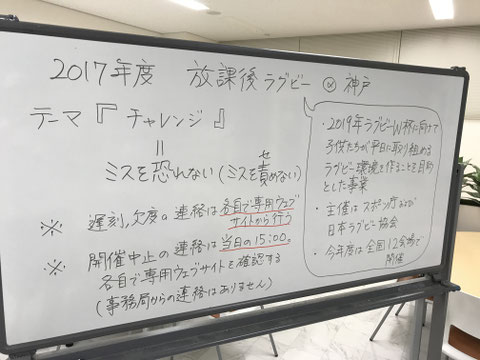 2017年度 放課後ラグビー @ 神戸
テーマ『チャレンジ』
=
ミスを恐れない(ミスを責めない)
せ
※ 遅刻、欠席の連絡は各自で専用ウェブ
サイトから行う
※ 開催中止の連絡は当日の15:00。
各自で専用ウェブサイトを確認する
(事務局からの連絡はありません)
・2019年ラグビーW杯に向けて
子供たちが平日に取り組める
ラグビー環境を作ることを目的
とした事業
・主催はスポーツ庁および
日本ラグビー協会
・今年度は全国12会場で
開催